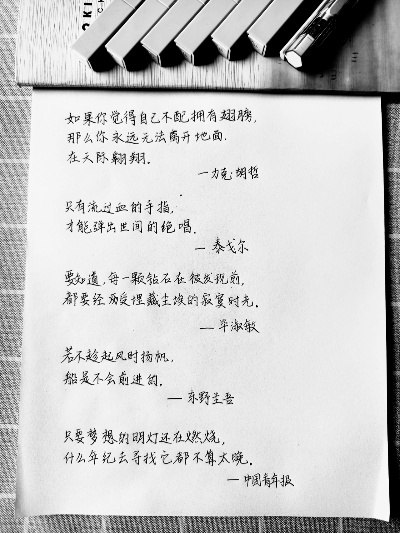 如果你觉得自己不配拥有翅膀,
那么你永远无法离开地面.
在天际翱翔.
—力克·胡哲
只有流过血的手指,
才能弹出世间的绝唱.
—泰戈尔
要知道,每一颗钻石在被发现前,
都要经历受埋藏尘埃的寂寞时光.
—毕淑敏
若不趁起风时扬帆,
船是不会前进的.
—东野圭吾
只要梦想的明灯还在燃烧,
什么年纪去寻找它都不算太晚.
—中国青年报